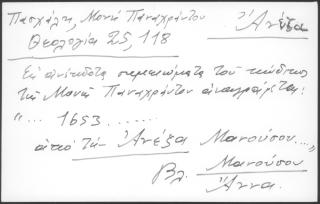 Πασχάλη, Μονή Παναχράντου Ἀνέζα
Θεολογία 25, 118
Εἰς ἀνέκδοτα σημειώματα τοῦ κώδικος
τῆς Μονῆς Παναχράντου ἀναγράφεται:
"... 1653 ........
ἀπό τήν Ἀνέζα Μανούσου...."
Βλ. Μανούσου
Ἄννα.